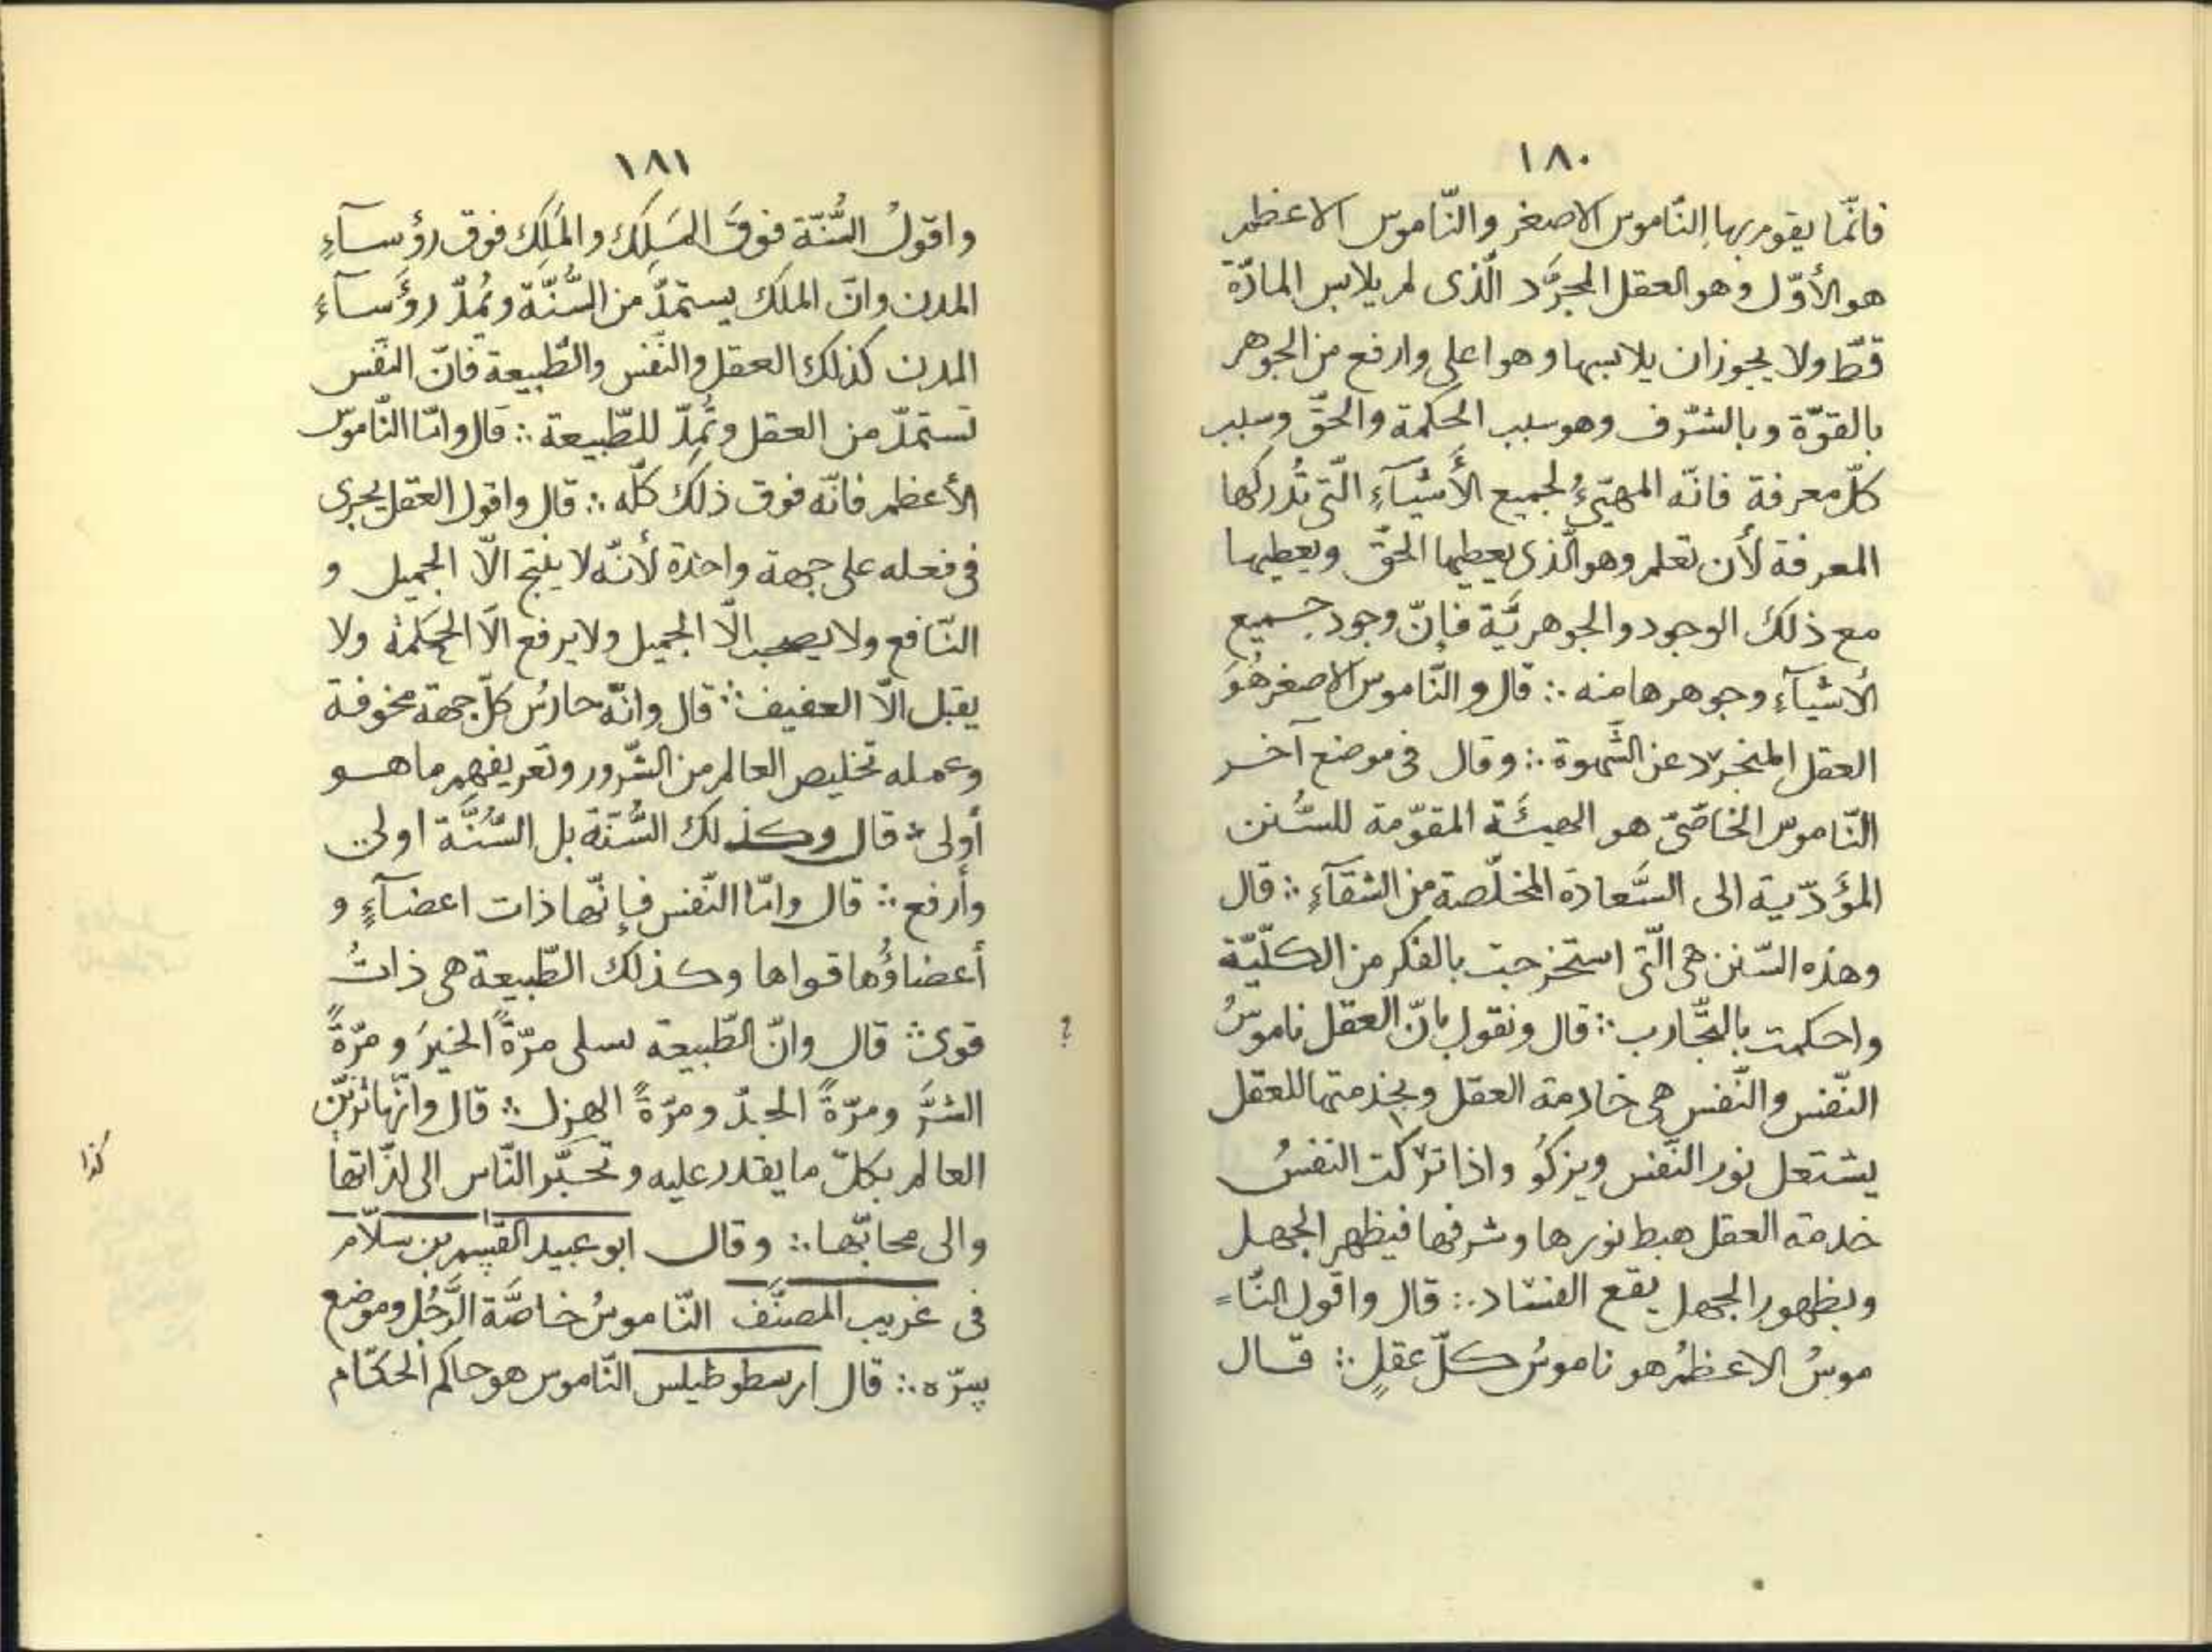 ١٨٠
فانّما يقوم بها النّاموس الاصغر والنّاموس الاعظم
هو الأوّل وهو العقل المجرَّد الّذى لم يلابس المادّة
قطّ ولا يجوز ان يلابسها وهو اعلى وارفع من الجوهر
بالقوّة وبالشّرف وهو سبب الحكمة والحقّ وسبب
كلّ معرفة فانّه المهيّئُ لجميع الأَشيآءِ الّتى تُدركها
المعرفة لأن تعلم وهو الّذى يعطيها الحقّ ويعطيها
مع ذلك الوجود والجوهريَّة فإنّ وجود جميع
الأشيآءِ وجوهرها منه ∴ قال والنّاموس الاصغر هُوَ
العقل المنجرد عن الشَّهوة ∴ وقال فى موضع آخر
النّاموس الخاصّىّ هو الهيئَة المقوّمة للسُّنن
المؤَدّية الى السَّعادة المخلّصة من الشقآءِ ∴ قال
وهذه السّنن هى الّتى استخرجت بالفكر من الكلّيّة
واحكمت بالتّجارب ∴ قال ونقول بانّ العقل ناموسُ
النّفس والنّفس هى خادمة العقل وبخدمتها للعقل
يشتعل نور النّفس ويزكُو واذا تركت النفسُ
خدمة العقل هبط نورها وشرفها فيظهر الجهل
وبظهور الجهل يقع الفساد ∴ قال واقول النّا=
موسُ الاعظمُ هو ناموسُ كلّ عقلٍ ∴ قال
١٨١
واقولُ السُّنّة فوقَ المَلِك والمَلِك فوق رؤسآءِ
المدن وانّ الملك يستمدّ من السُّنّة ويُمِدّ رؤَسآءَ
المدن كذلك العقل والنّفس والطّبيعة فانّ النّفس
تستمدّ من العقل وتُمِدّ للطّبيعة ∴ قال وامّا النّاموس
الأعظم فانّه فوق ذلك كلّه ∴ قال واقول العقل يجرى
فى فعله على جهة واحدة لأنّه لا ينتج الّا الجميل و
النّافع ولا يصحب الّا الجميل ولا يرفع الّا الحكمة ولا
يقبل الّا العفيف ∴ قال وانّه حارسُ كلّ جهة مخوفة
وعمله تخليص العالم من الشّرور وتعريفهم ما هو
أولى ∴ قال وكذلك السُّنّة بل السُّنَّة اولى
وأَرفع ∴ قال وامّا النّفس فإنّها ذات اعضآءٍ و
أعضاؤُها قواها وكذلك الطّبيعة هى ذاتُ
قوى ∴ قال وانّ الطّبيعة مرّةً الخيرَ و مرّةً ؟
الشرَّ ومرّةً الجدّ ومرّةً الهزل ∴ قال وانّها تزيّن
العالم بكلّ ما يقدر عليه النّاس الى لذّاتها كذا
والى محابّها ∴ وقال ابو عبيد القسم بن سلّام
فى غريب المصنَّف النّاموسُ خاصَّة الرَّجُل وموضع
سِرّه ∴ قال ارسطوطيلس النّاموس هو حاكم الحكّام